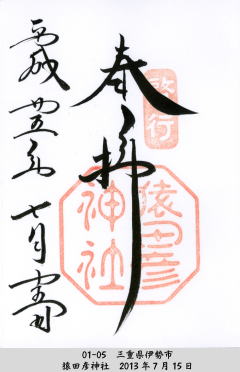 奉拝
啓行
猿田彦
神社
平成廿五年七月十五日
01-05 三重県伊勢市
猿田彦神社 2013年7月15日